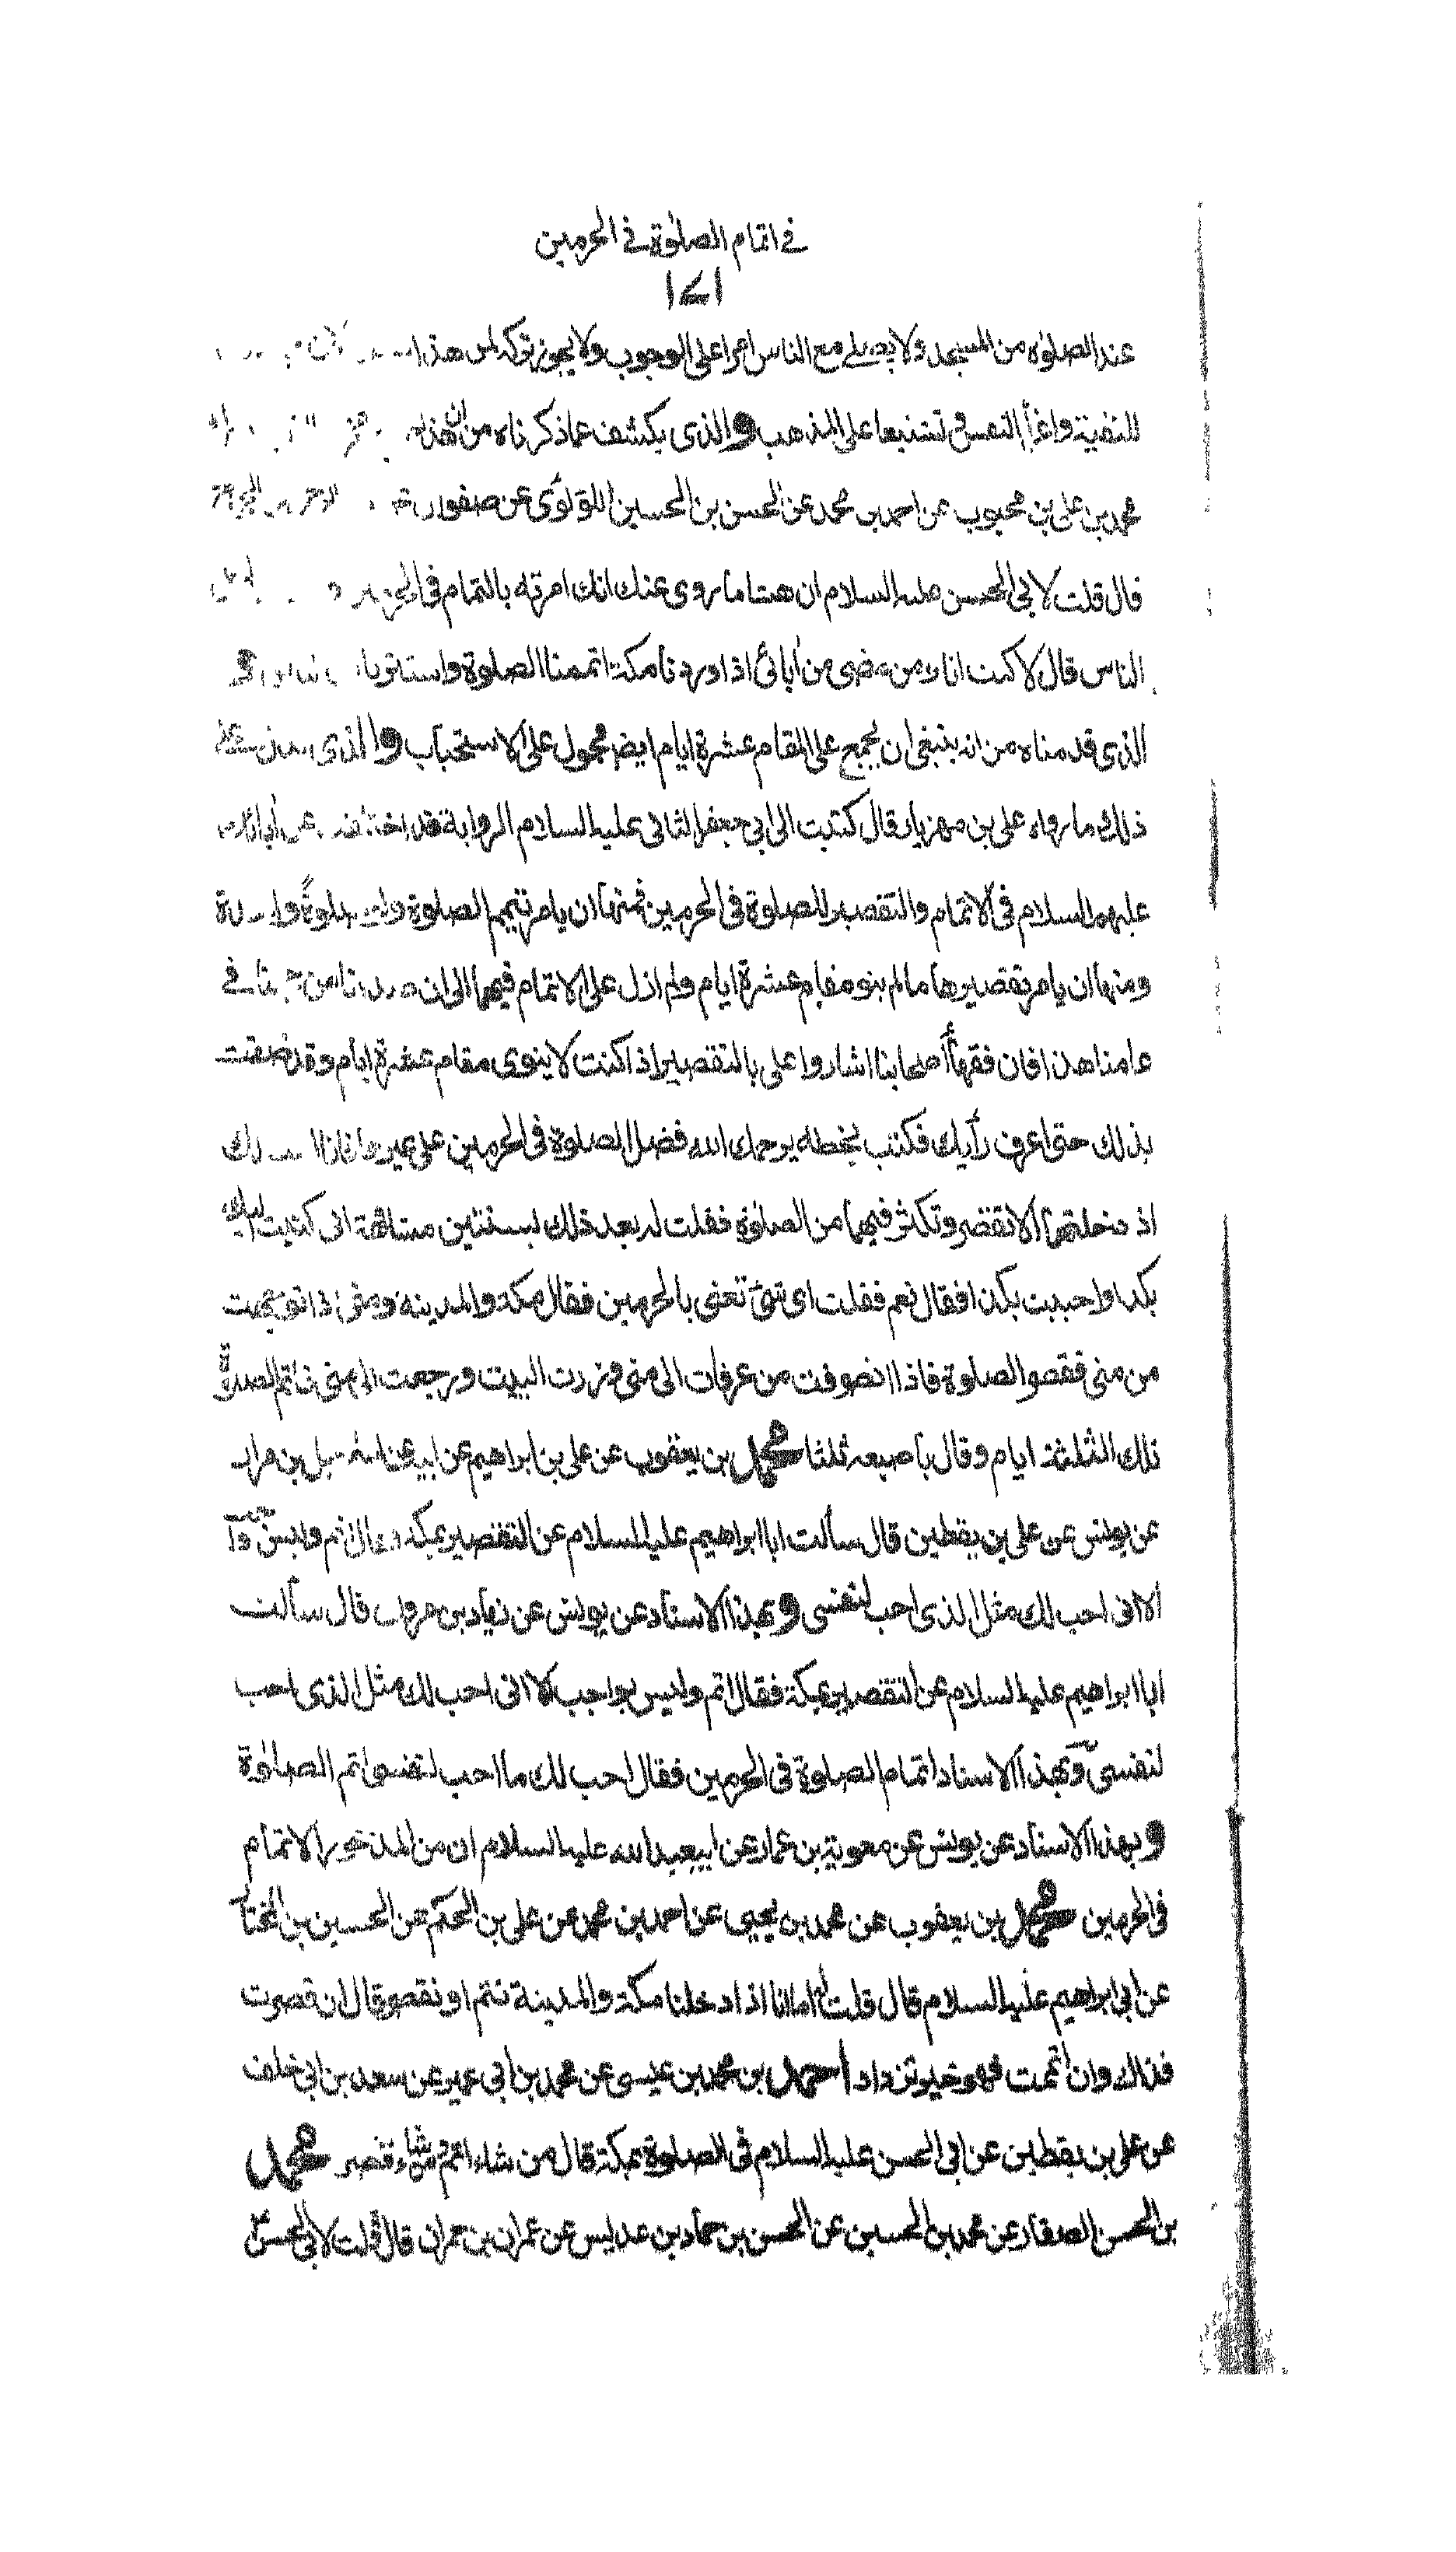 في اتمام الصلوة في الحرمين
١٤١
عند الصلوة من المسجد ولا يصلى مع الناس امرا على الوجوب ولا يجوز تركه لمن هذا
للتقية واغراء النفس وتشنيعا على المذهب والذى يكشف عما ذكرناه من ان هذا
محمد بن على بن محبوب عن احمد بن محمد عن الحسن بن الحسين اللؤلؤى عن صفوان عن
قال قلت لابي الحسن عليه السلام ان هشاما روى عنك انك امرته بالتمام في الحرمين
الناس قال لا كنت انا ومن مضى من آبائى اذا وردنا مكة اتممنا الصلوة واستترنا
الذى قدمناه من انه ينبغى ان يجمع على المقام عشرة ايام ايضا محمول على الاستحباب والذى
ذلك ما رواه على بن مهزيار قال كتبت الى ابي جعفر الثانى عليه السلام الرواية قد اختلفت عن آبائك
عليهم السلام في الاتمام والتقصير للصلوة في الحرمين فمنها ان يامر تتميم الصلوة ولو صلوة واحدة
ومنها ان يامر بتقصيرها مالم ينو مقام عشرة ايام ولم ازل على الاتمام فيهما الى ان صدرنا من حجنا في
عامنا هذا فان فقهاء اصحابنا اشاروا على بالتقصير اذا كنت لا ينوى مقام عشرة ايام وقد ضقت
بذلك حتى اعرف رأيك فكتب بخطه يرحمك الله فضل الصلوة في الحرمين على غيرهما فانا احب لك
اذ دخلتهما الا تقصر وتكثر فيهما من الصلوة فقلت له بعد ذلك بسنتين مشافهة انى كتبت اليك
بكذا واجبت بكذا فقال نعم فقلت اى شئ تعنى بالحرمين فقال مكة والمدينة ومتى اذا توجهت
من منى فقصر الصلوة فاذا انصرفت من عرفات الى منى وزرت البيت ورجعت الى منى فاتم الصلوة
تلك الثلثة ايام وقال باصبعه ثلثا محمد بن يعقوب عن على بن ابراهيم عن ابيه عن اسمعيل بن مرار
عن يونس عن على بن يقطين قال سألت ابا ابراهيم عليه السلام عن التقصير بمكة فقال اتم وليس بواجب
الا انى احب لك مثل الذى احب لنفسى وبهذا الاسناد عن يونس عن زياد بن مروان قال سألت
ابا ابراهيم عليه السلام عن التقصير بمكة فقال اتم وليس بواجب الا انى احب لك مثل الذى احب
لنفسى وبهذا الاسناد اتمام الصلوة في الحرمين فقال احب لك ما احب لنفسى اتم الصلوة
وبهذا الاسناد عن يونس عن معوية بن عمار عن ابيعبد الله عليه السلام ان من المذخور الاتمام
في الحرمين محمد بن يعقوب عن محمد بن يحيى عن احمد بن محمد عن على بن الحكم عن الحسين بن المختار
عن ابي ابراهيم عليه السلام قال قلت له انا اذا دخلنا مكة والمدينة نتم او نقصر قال ان قصرت
فذاك وان اتممت فهو خير تزداد احمد بن محمد بن عيسى عن محمد بن ابي عمير عن سعد بن ابي خلف
عن على بن يقطين عن ابي الحسن عليه السلام في الصلوة بمكة قال من شاء اتم ومن شاء قصر محمد
بن الحسن الصفار عن محمد بن الحسين عن الحسن بن حماد بن عديس عن عمران بن حمران قال قلت لابي الحسن